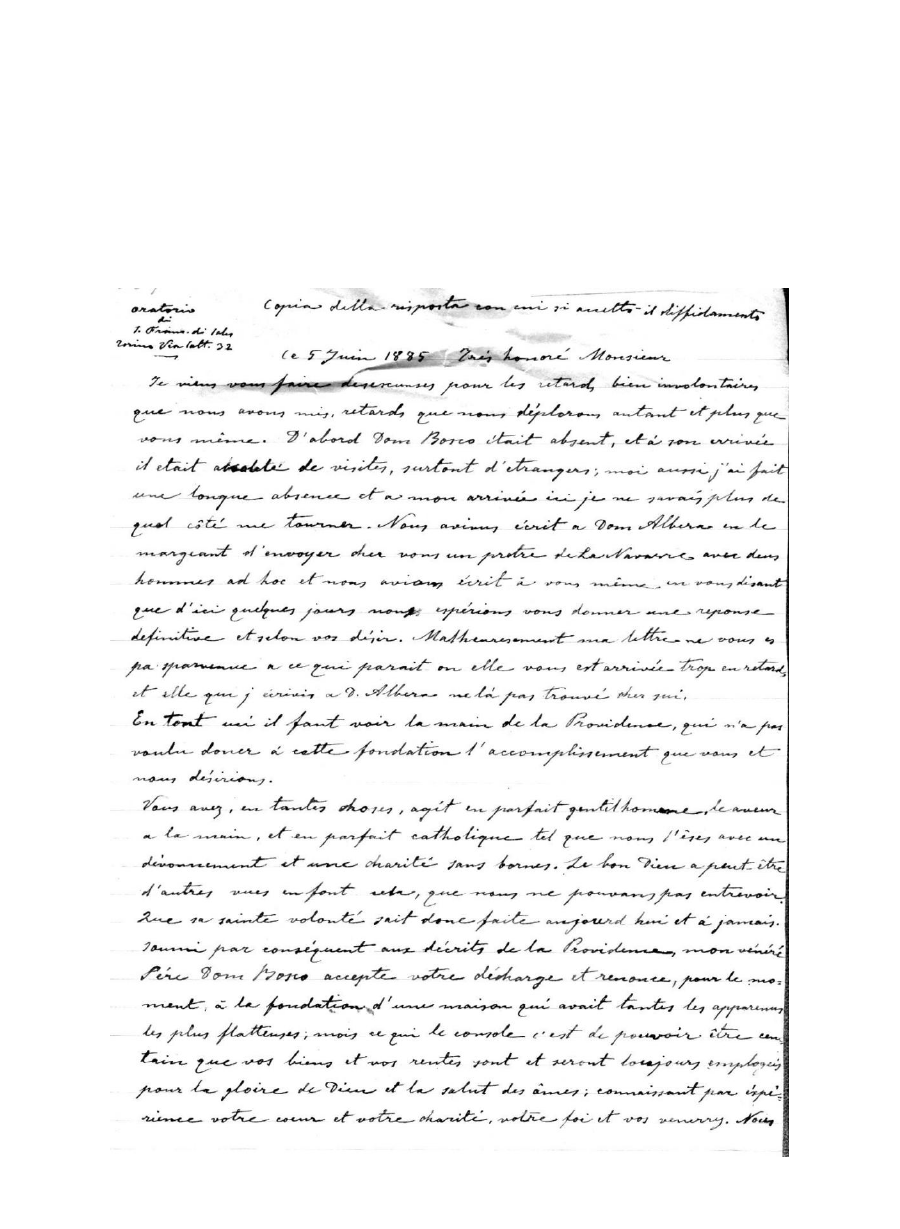 oratorio
di
S. Franc. di Sales
Torino Via Cott. 32
Copia della risposta con cui si accetta il diffidamento
Ce 5 Juin 1885 Très honoré Monsieur
Je viens vous faire des excuses pour les retards bien involontaires
que nous avons mis, retards que nous déplorons autant et plus que
vous même. D'abord Dom Bosco était absent, et à son arrivée
il etait de visites, surtout d'etrangers; moi aussi j'ai fait
une longue absence et a mon arrivée ici je ne savais plus de
quel côté me tourner. Nous avions écrit a Dom Albera en le
margeant d'envoyer cher vous un pretre de la Navarre avec deus
hommes ad hoc et nous avions écrit à vous même en vous disant
que d'ici quelques jours nous espérions vous donner une reponse
definitive et selon vos désir. Malheuresement ma lettre ne vous es
pa sparvenue a ce qui parait ou elle vous est arrivée trop en retard,
et elle que j'écrivis a D. Albera ne là pas trouvé cher sui.
En tout ceci il faut voir la main de la Providence, qui n'a pas
voulu doner à cette fondation l'accomplissement que vous et
nous désirions.
Vous avez, en tantes choses, agit en parfait gentilhomme, le
a la main, et en parfait catholique tel que nous l'êses avec un
dévounsement et une charité sans bornes. Le bon Dieu a peut-être
d'autres vues en tout cela, que nous ne pouvons pas entrevoir.
Que sa sainte volonté sait donc faite aujourd hui et á jamais.
Soumi par conséquent aux décrits de la Providence, mon vénéré
Père Dom Bosco accepte votre décharge et renonce, pour le mo=
ment, à la fondation d'une maison qui avait tantes les apparences
les plus flatteuses; mois ce qui le console c'est de pouvoir être cer
tain que vos biens et vos rentes sont et seront toujours employés
pour la gloire de Dieu et la salut des âmes; connaissant par éspé=
rience votre coeur et votre charité, votre foi et vos. Nous